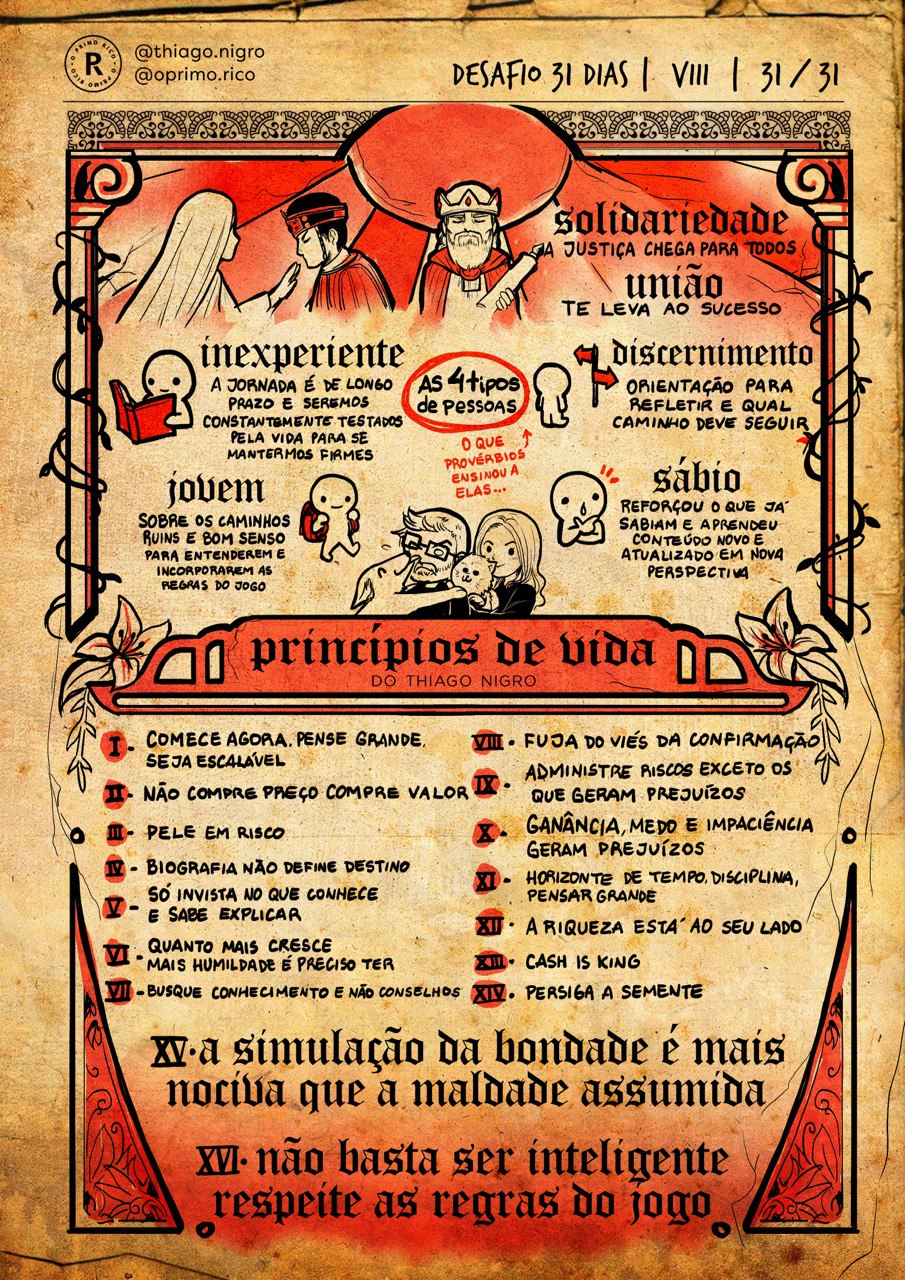 O PRIMO RICO • O PRIMO RICO •
R
@thiago.nigro
@oprimo.rico
DESAFIO 31 DIAS | VIII | 31/31
solidariedade
A JUSTIÇA CHEGA PARA TODOS
união
TE LEVA AO SUCESSO
inexperiente
A JORNADA É DE LONGO
PRAZO E SEREMOS
CONSTANTEMENTE TESTADOS
PELA VIDA PARA SE
MANTERMOS FIRMES
AS 4 tipos
de PESSOAS
O QUE
PROVÉRBIOS
ENSINOU A
ELAS...
discernimento
ORIENTAÇÃO PARA
REFLETIR E QUAL
CAMINHO DEVE SEGUIR
jovem
SOBRE OS CAMINHOS
RUINS E BOM SENSO
PARA ENTENDEREM E
INCORPORAREM AS
REGRAS DO JOGO
sábio
REFORÇOU O QUE JÁ
SABIAM E APRENDEU
CONTEÚDO NOVO E
ATUALIZADO EM NOVA
PERSPECTIVA
princípios de vida
DO THIAGO NIGRO
I - COMECE AGORA, PENSE GRANDE,
SEJA ESCALÁVEL
II - NÃO COMPRE PREÇO COMPRE VALOR
III - PELE EM RISCO
IV - BIOGRAFIA NÃO DEFINE DESTINO
V - SÓ INVISTA NO QUE CONHECE
E SABE EXPLICAR
VI - QUANTO MAIS CRESCE
MAIS HUMILDADE É PRECISO TER
VII - BUSQUE CONHECIMENTO E NÃO CONSELHOS
VIII • FUJA DO VIÉS DA CONFIRMAÇÃO
IX • ADMINISTRE RISCOS EXCETO OS
QUE GERAM PREJUÍZOS
X • GANÂNCIA, MEDO E IMPACIÊNCIA
GERAM PREJUÍZOS
XI • HORIZONTE DE TEMPO, DISCIPLINA,
PENSAR GRANDE
XII • A RIQUEZA ESTÁ AO SEU LADO
XIII • CASH IS KING
XIV • PERSIGA A SEMENTE
XV • a simulação da bondade é mais
nociva que a maldade assumida
XVI • não basta ser inteligente
respeite as regras do jogo